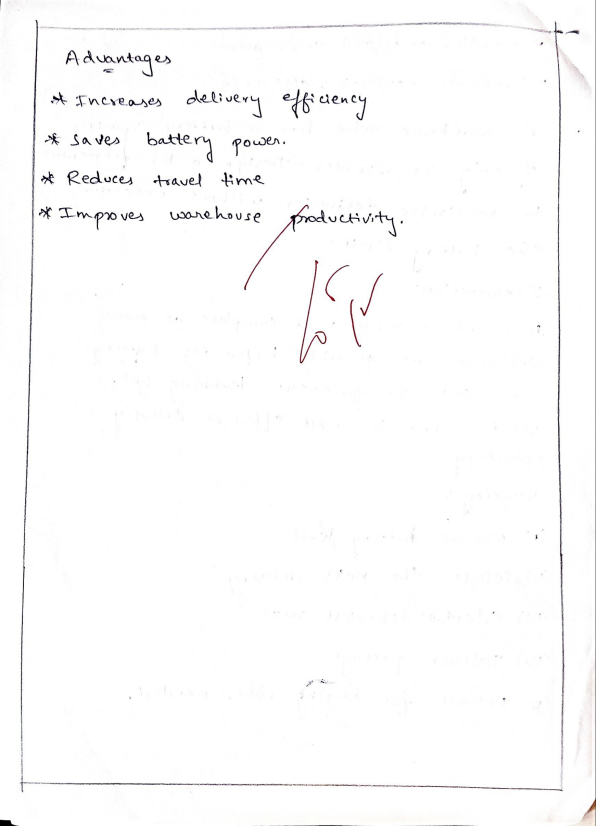 Advantages
* Increases delivery efficiency
* saves battery power.
* Reduces travel time
* Improves warehouse productivity.